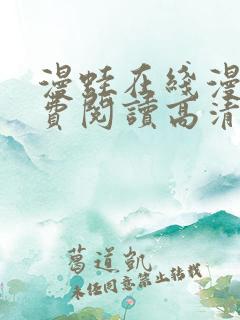 漫蛙在线漫
费阅读高清
葛道凯
未经同意禁止转载